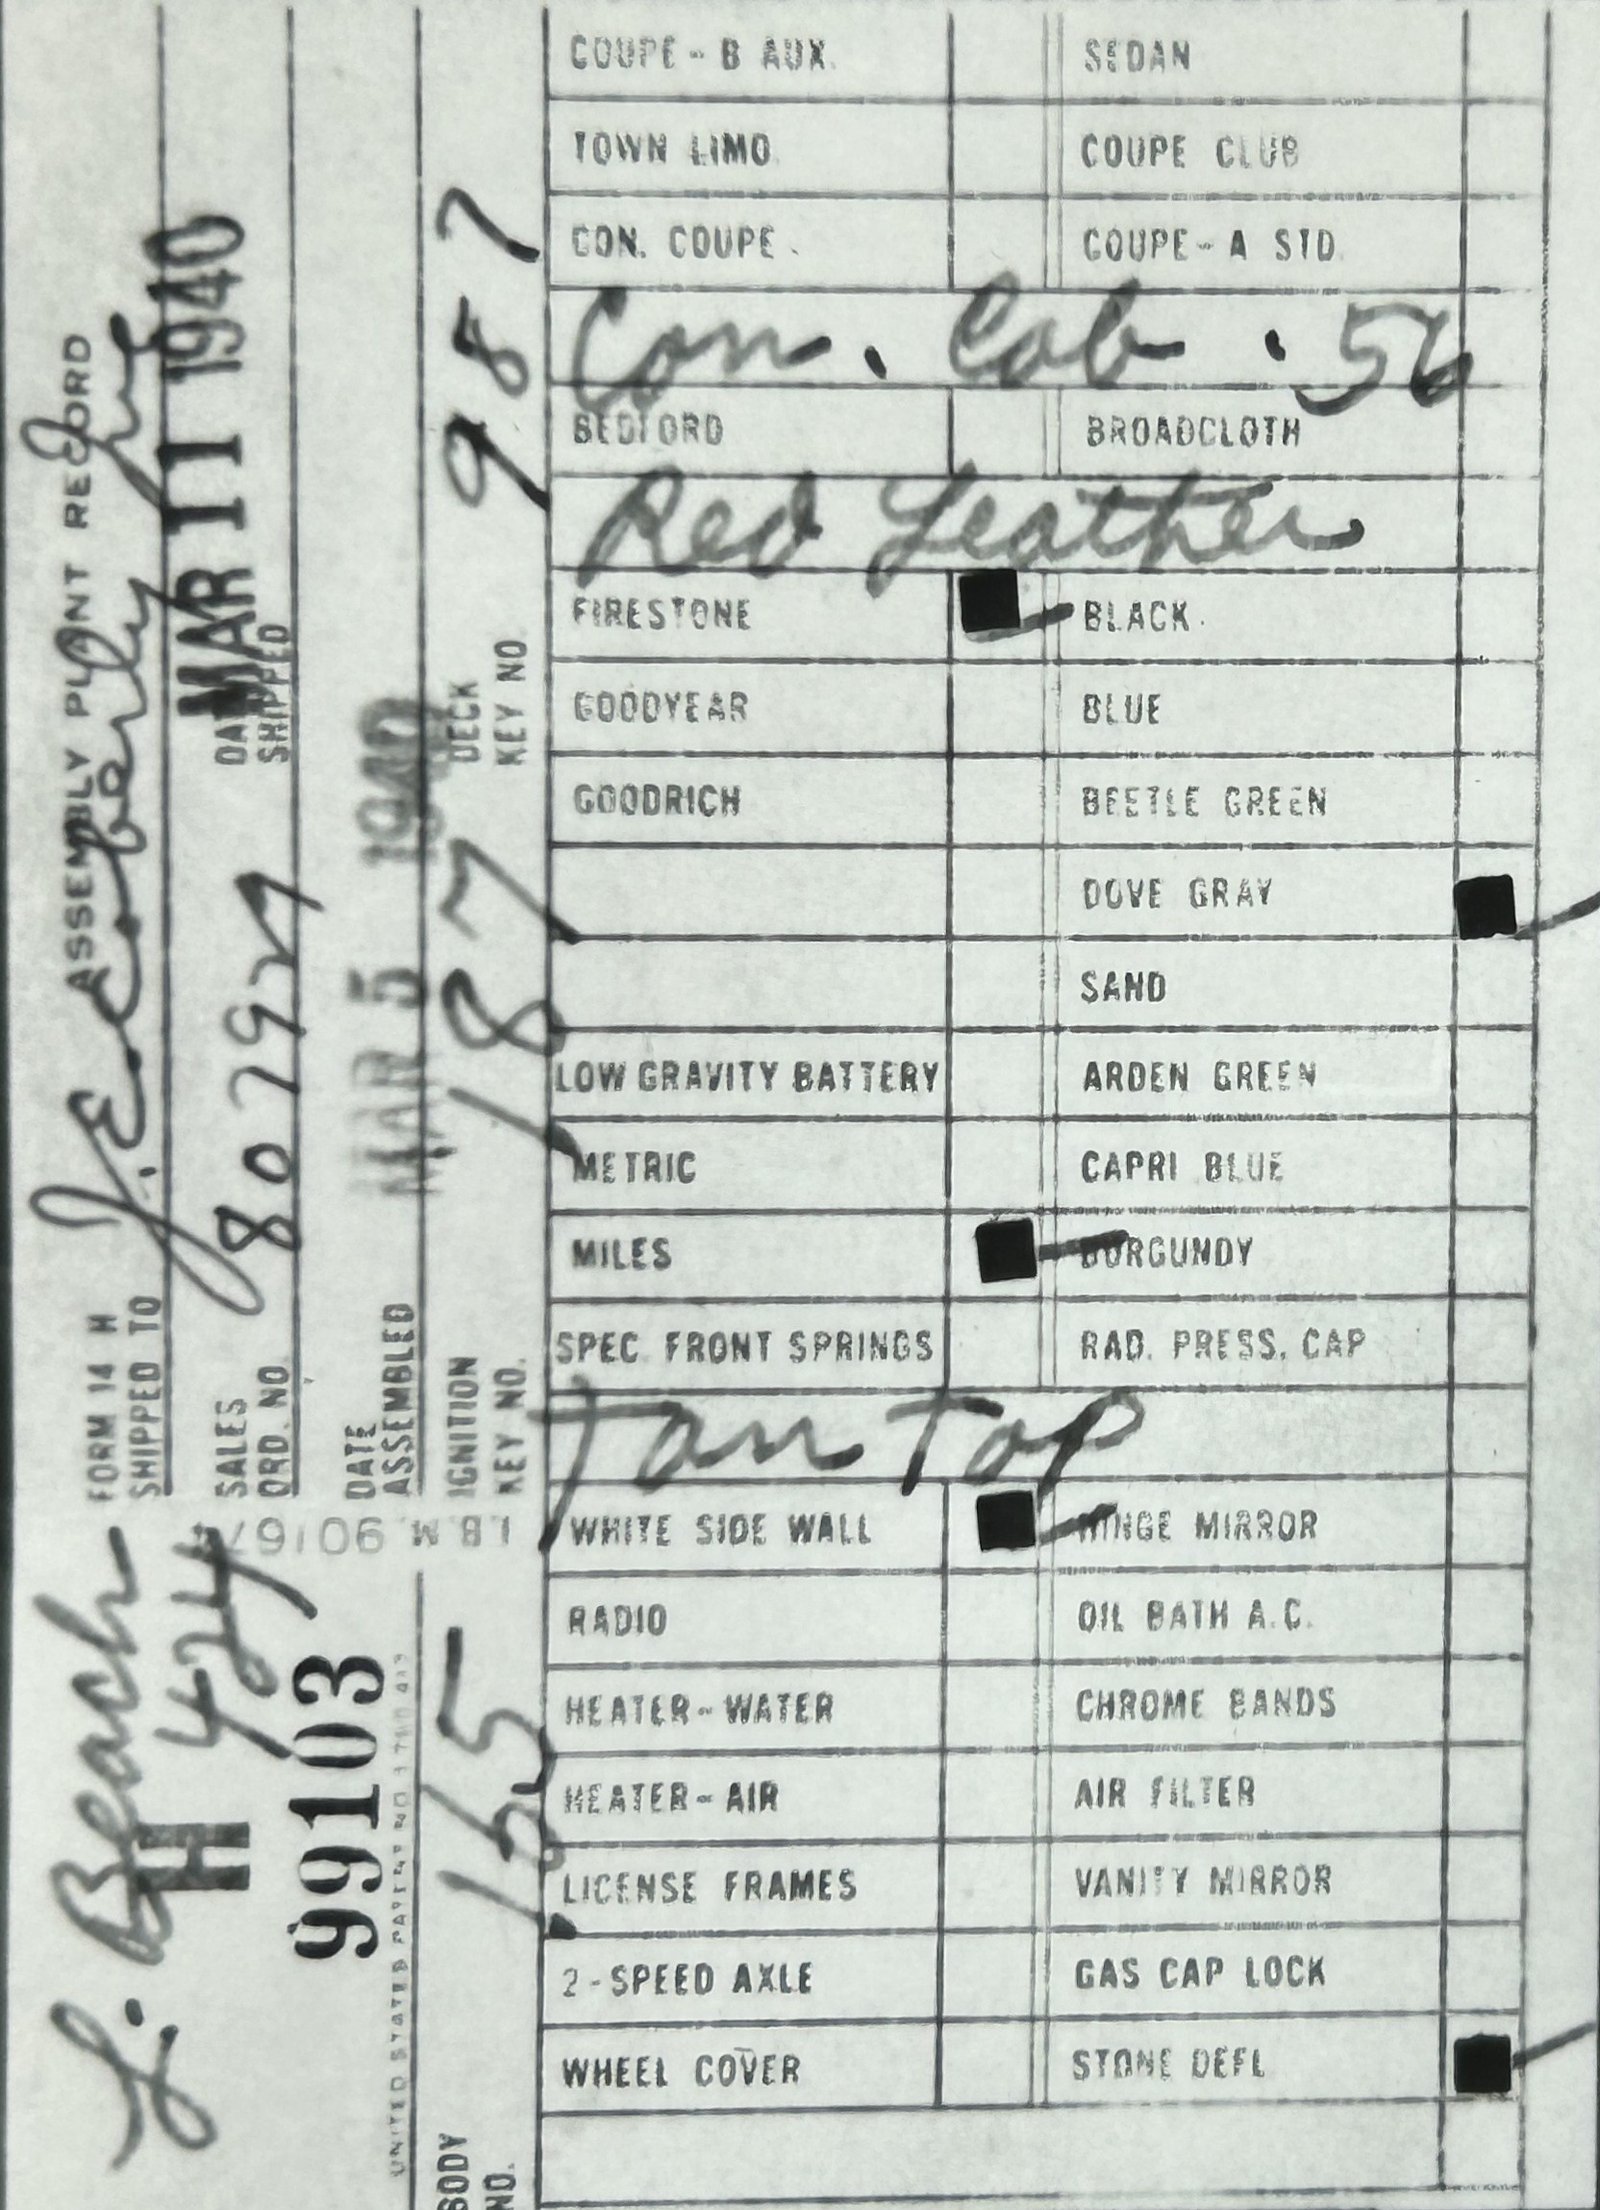 FORM 14 H ASSEMBLY PLANT RECORD
SHIPPED TO
SALES ORD. NO. 80792
DATE SHIPPED MAR 11 1940
DATE ASSEMBLED MAR 5 1940
IGNITION KEY NO. 187
DECK KEY NO. 987
L. Beach
H 424
H
99103
BODY NO. 165
COUPE - B AUX. SEDAN
TOWN LIMO. COUPE CLUB
CON. COUPE. COUPE - A STD.
Con. Cab. 56
BEDFORD BROADCLOTH
Red Leather
FIRESTONE BLACK
GOODYEAR BLUE
GOODRICH BEETLE GREEN
DOVE GRAY
SAND
LOW GRAVITY BATTERY ARDEN GREEN
METRIC CAPRI BLUE
MILES BURGUNDY
SPEC. FRONT SPRINGS RAD. PRESS. CAP
Tan Top
WHITE SIDE WALL HINGE MIRROR
RADIO OIL BATH A.C.
HEATER - WATER CHROME BANDS
HEATER - AIR AIR FILTER
LICENSE FRAMES VANITY MIRROR
2 - SPEED AXLE GAS CAP LOCK
WHEEL COVER STONE DEFL